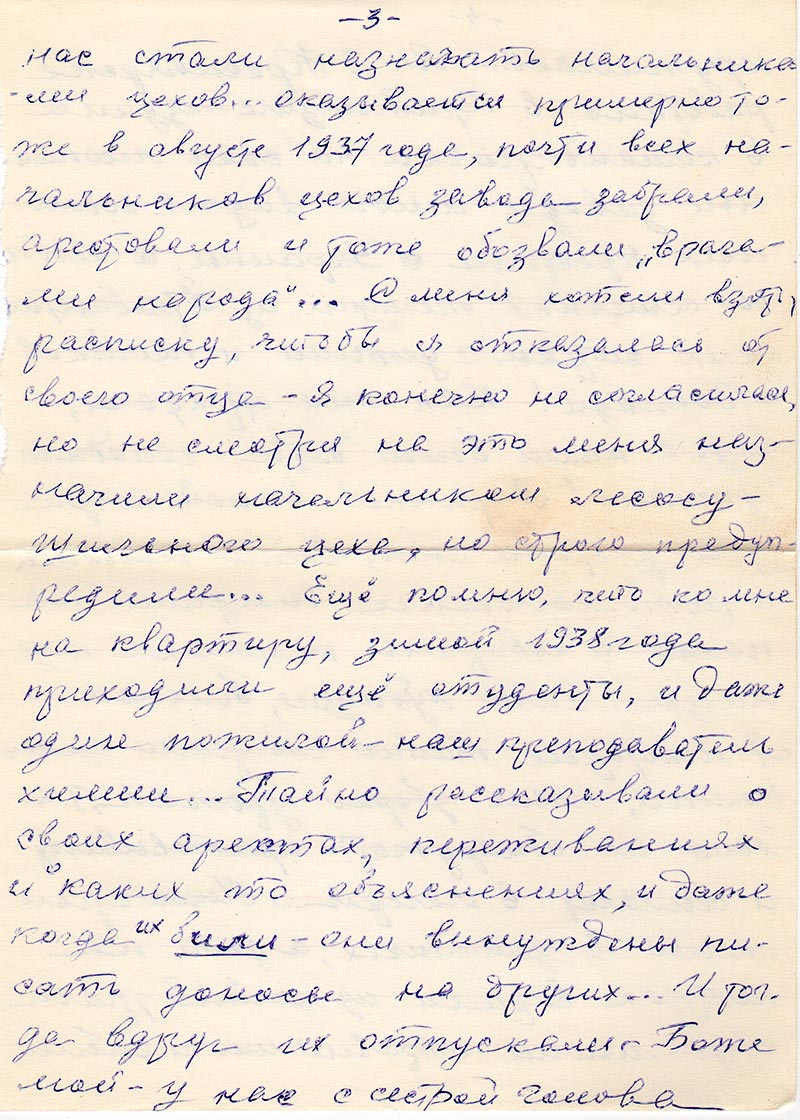 -3-
нас стали назначать начальника-
-ми цехов... оказывается примерно то-
же в августе 1937 года, почти всех на-
чальников цехов завода забрали,
арестовали и тоже обозвали „врага-
ми народа"... С меня хотели взять
расписку, чтобы я отказалась от
своего отца - я конечно не согласилась,
но не смотря на это меня наз-
начили начальником лесосу-
шильного цеха, но строго предуп-
редили... Ещё помню, что ко мне
на квартиру, зимой 1938 года
приходили ещё студенты, и даже
один пожилой - наш преподаватель
химии... Тайно рассказывали о
своих арестах, переживаниях
и каких то объяснениях, и даже
когда их били - они вынуждены пи-
сать доносы на других... И тог-
да вдруг их отпускали - Боже
мой - у нас с сестрой голова